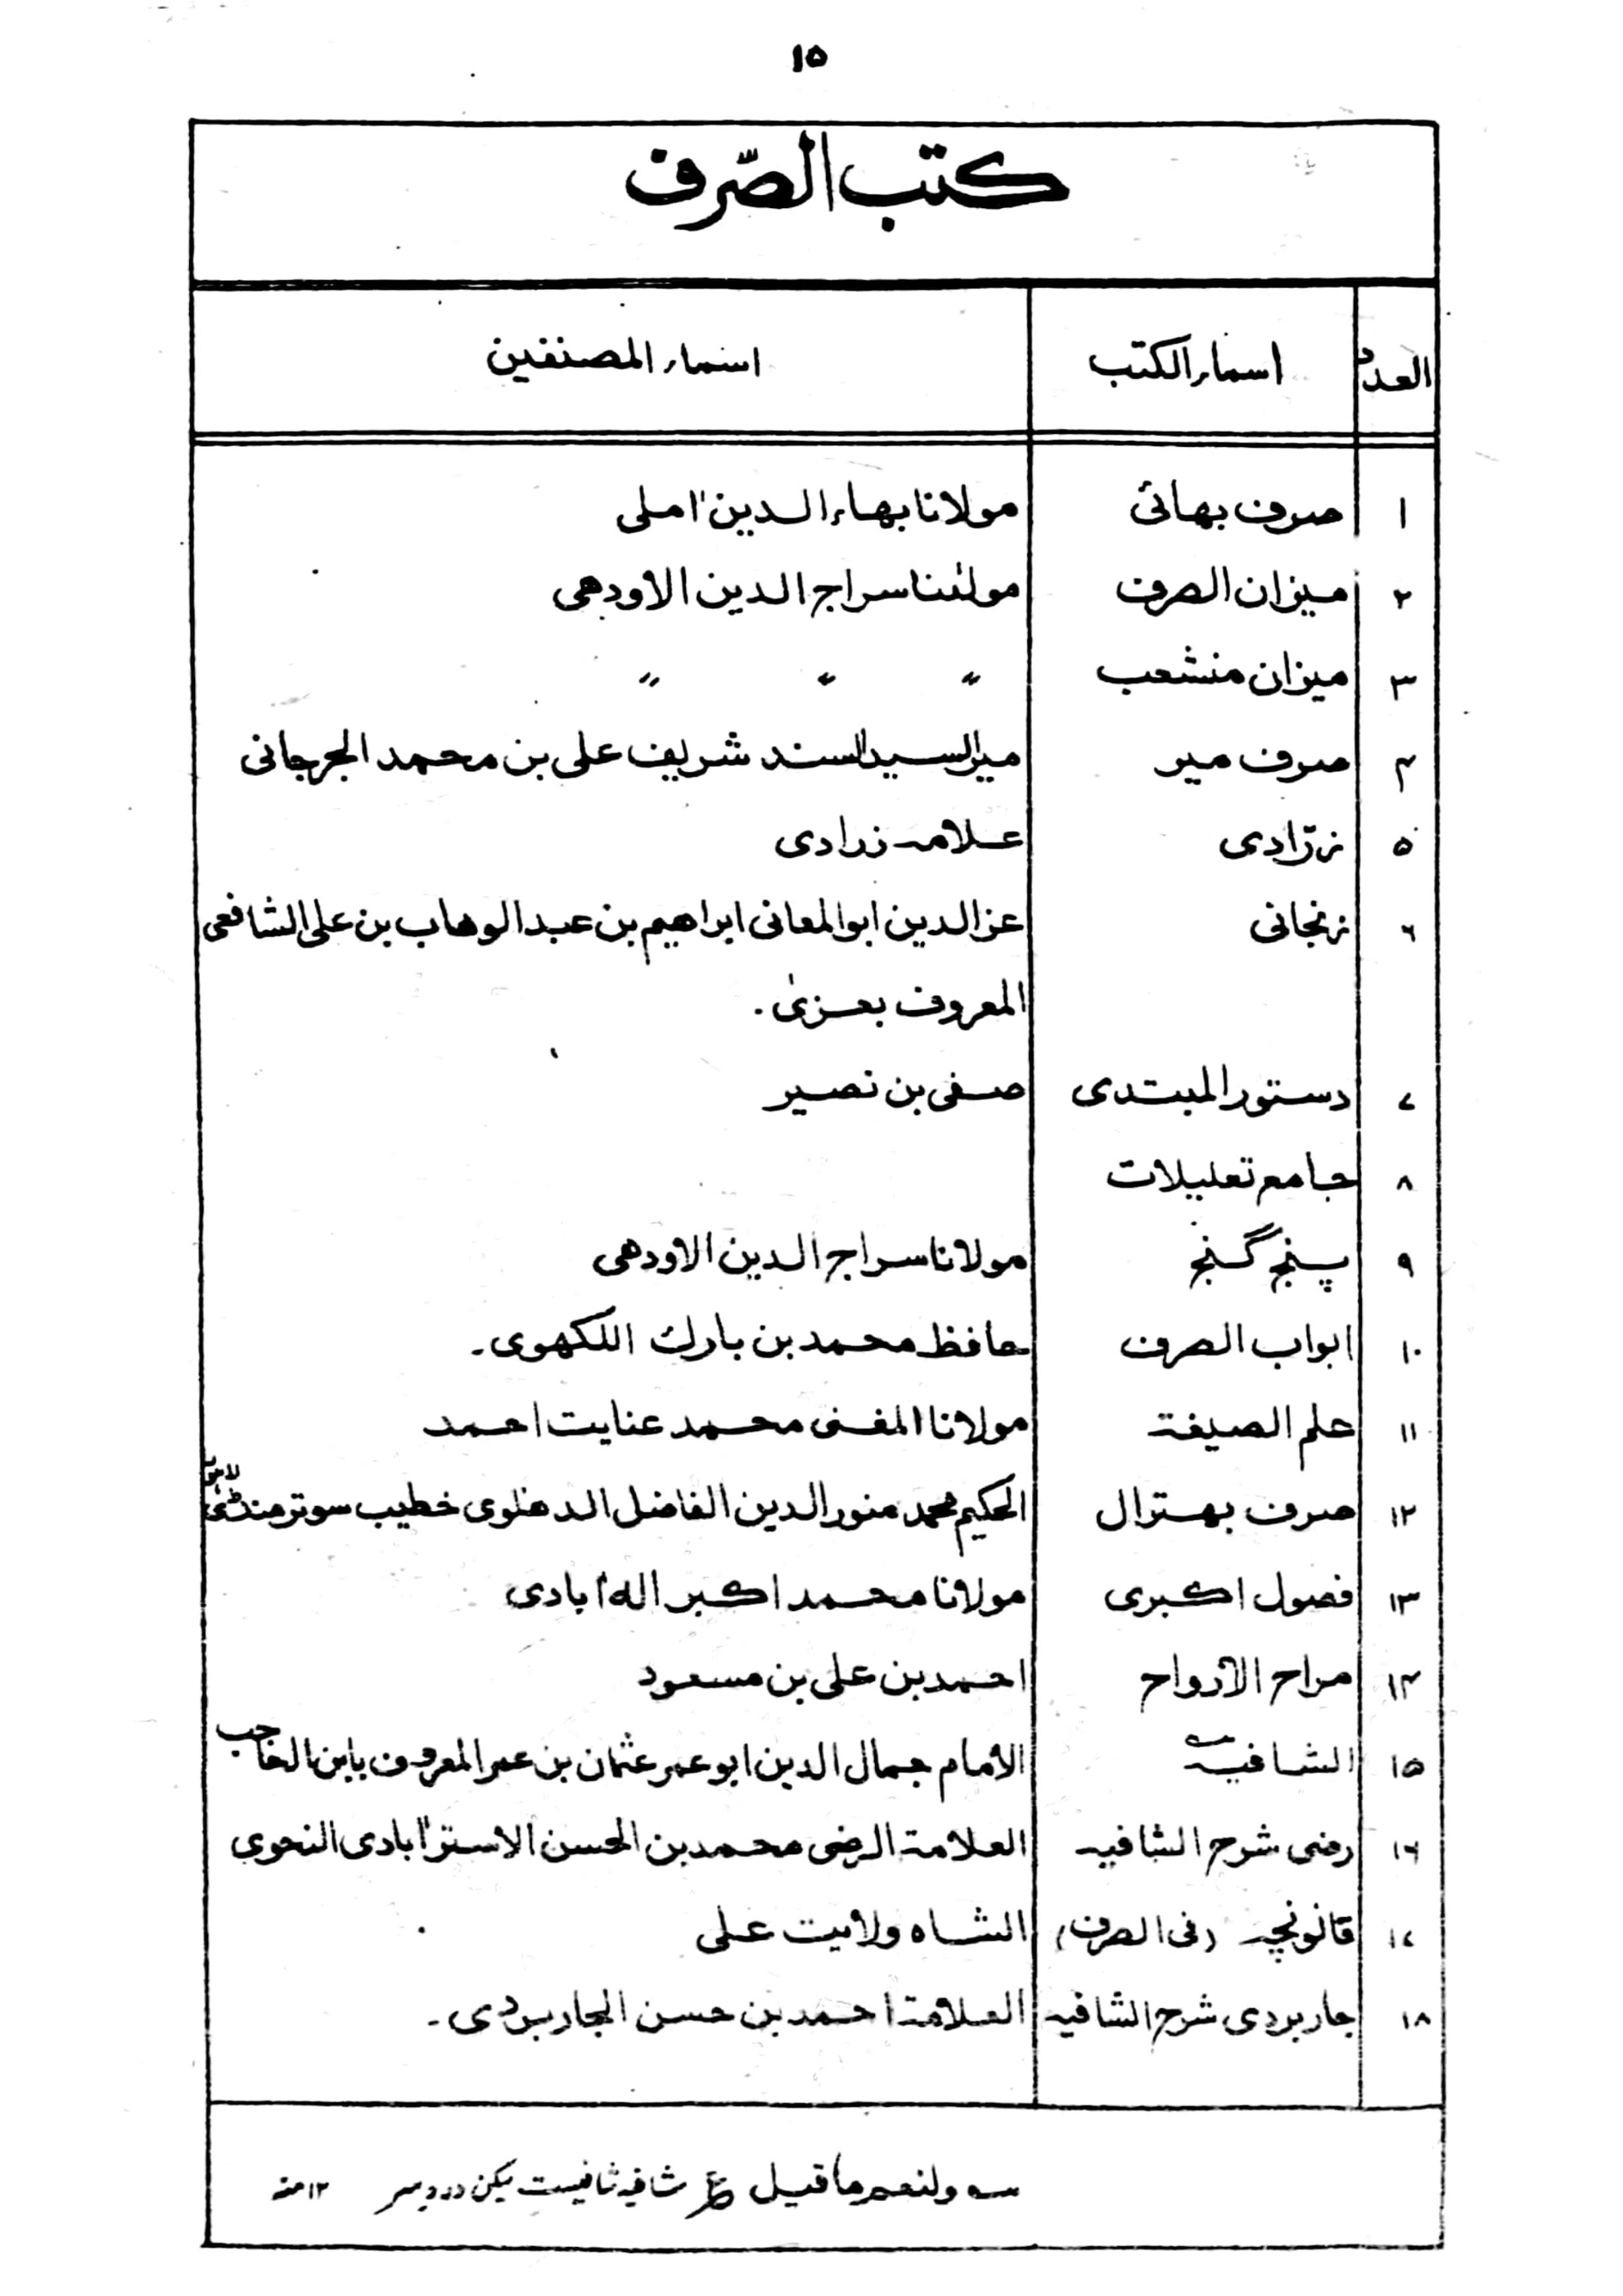 ۱۵
كتب الصّرف
العدد اسماء الكتب اسماء المصنفين
۱ صرف بهائى مولانا بهاء الدين املى
۲ ميزان الصرف مولٰنا سراج الدين الاودهى
۳ ميزان منشعب " " "
۴ صرف مير مير السيد السند شريف على بن محمد الجرجانى
۵ زرّادى علامه زرادى
۶ زنجانى عز الدين ابو المعانى ابراهيم بن عبد الوهاب بن على الشافعى
المعروف بعزى.
۷ دستور المبتدى صفى بن نصير
۸ جامع تعليلات
۹ پنج گنج مولانا سراج الدين الاودهى
۱۰ ابواب الصرف حافظ محمد بن بارك اللكهوى۔
۱۱ علم الصيغة مولانا المفتى محمد عنايت احمد
۱۲ صرف بهترال الحكيم محمد منور الدين الفاضل الدهلوى خطيب سوتر منڈى
۱۳ فصول اكبرى مولانا محمد اكبر الٰه آبادى
۱۴ مراح الارواح احمد بن على بن مسعود
۱۵ الشافيه الامام جمال الدين ابو عمر عثمان بن عمر المعروف بابن الحاجب
۱۶ رضى شرح الشافيه العلامة الرضى محمد بن الحسن الاسترآبادى النحوى
۱۷ قانونچه (فى الصرف) الشاه ولايت على
۱۸ جاربردى شرح الشافيه العلامة احمد بن حسن الجاربردى۔
سه ولنعم ما قيل ع شافيه شافيست ليكن درد سر ۱۲ منه